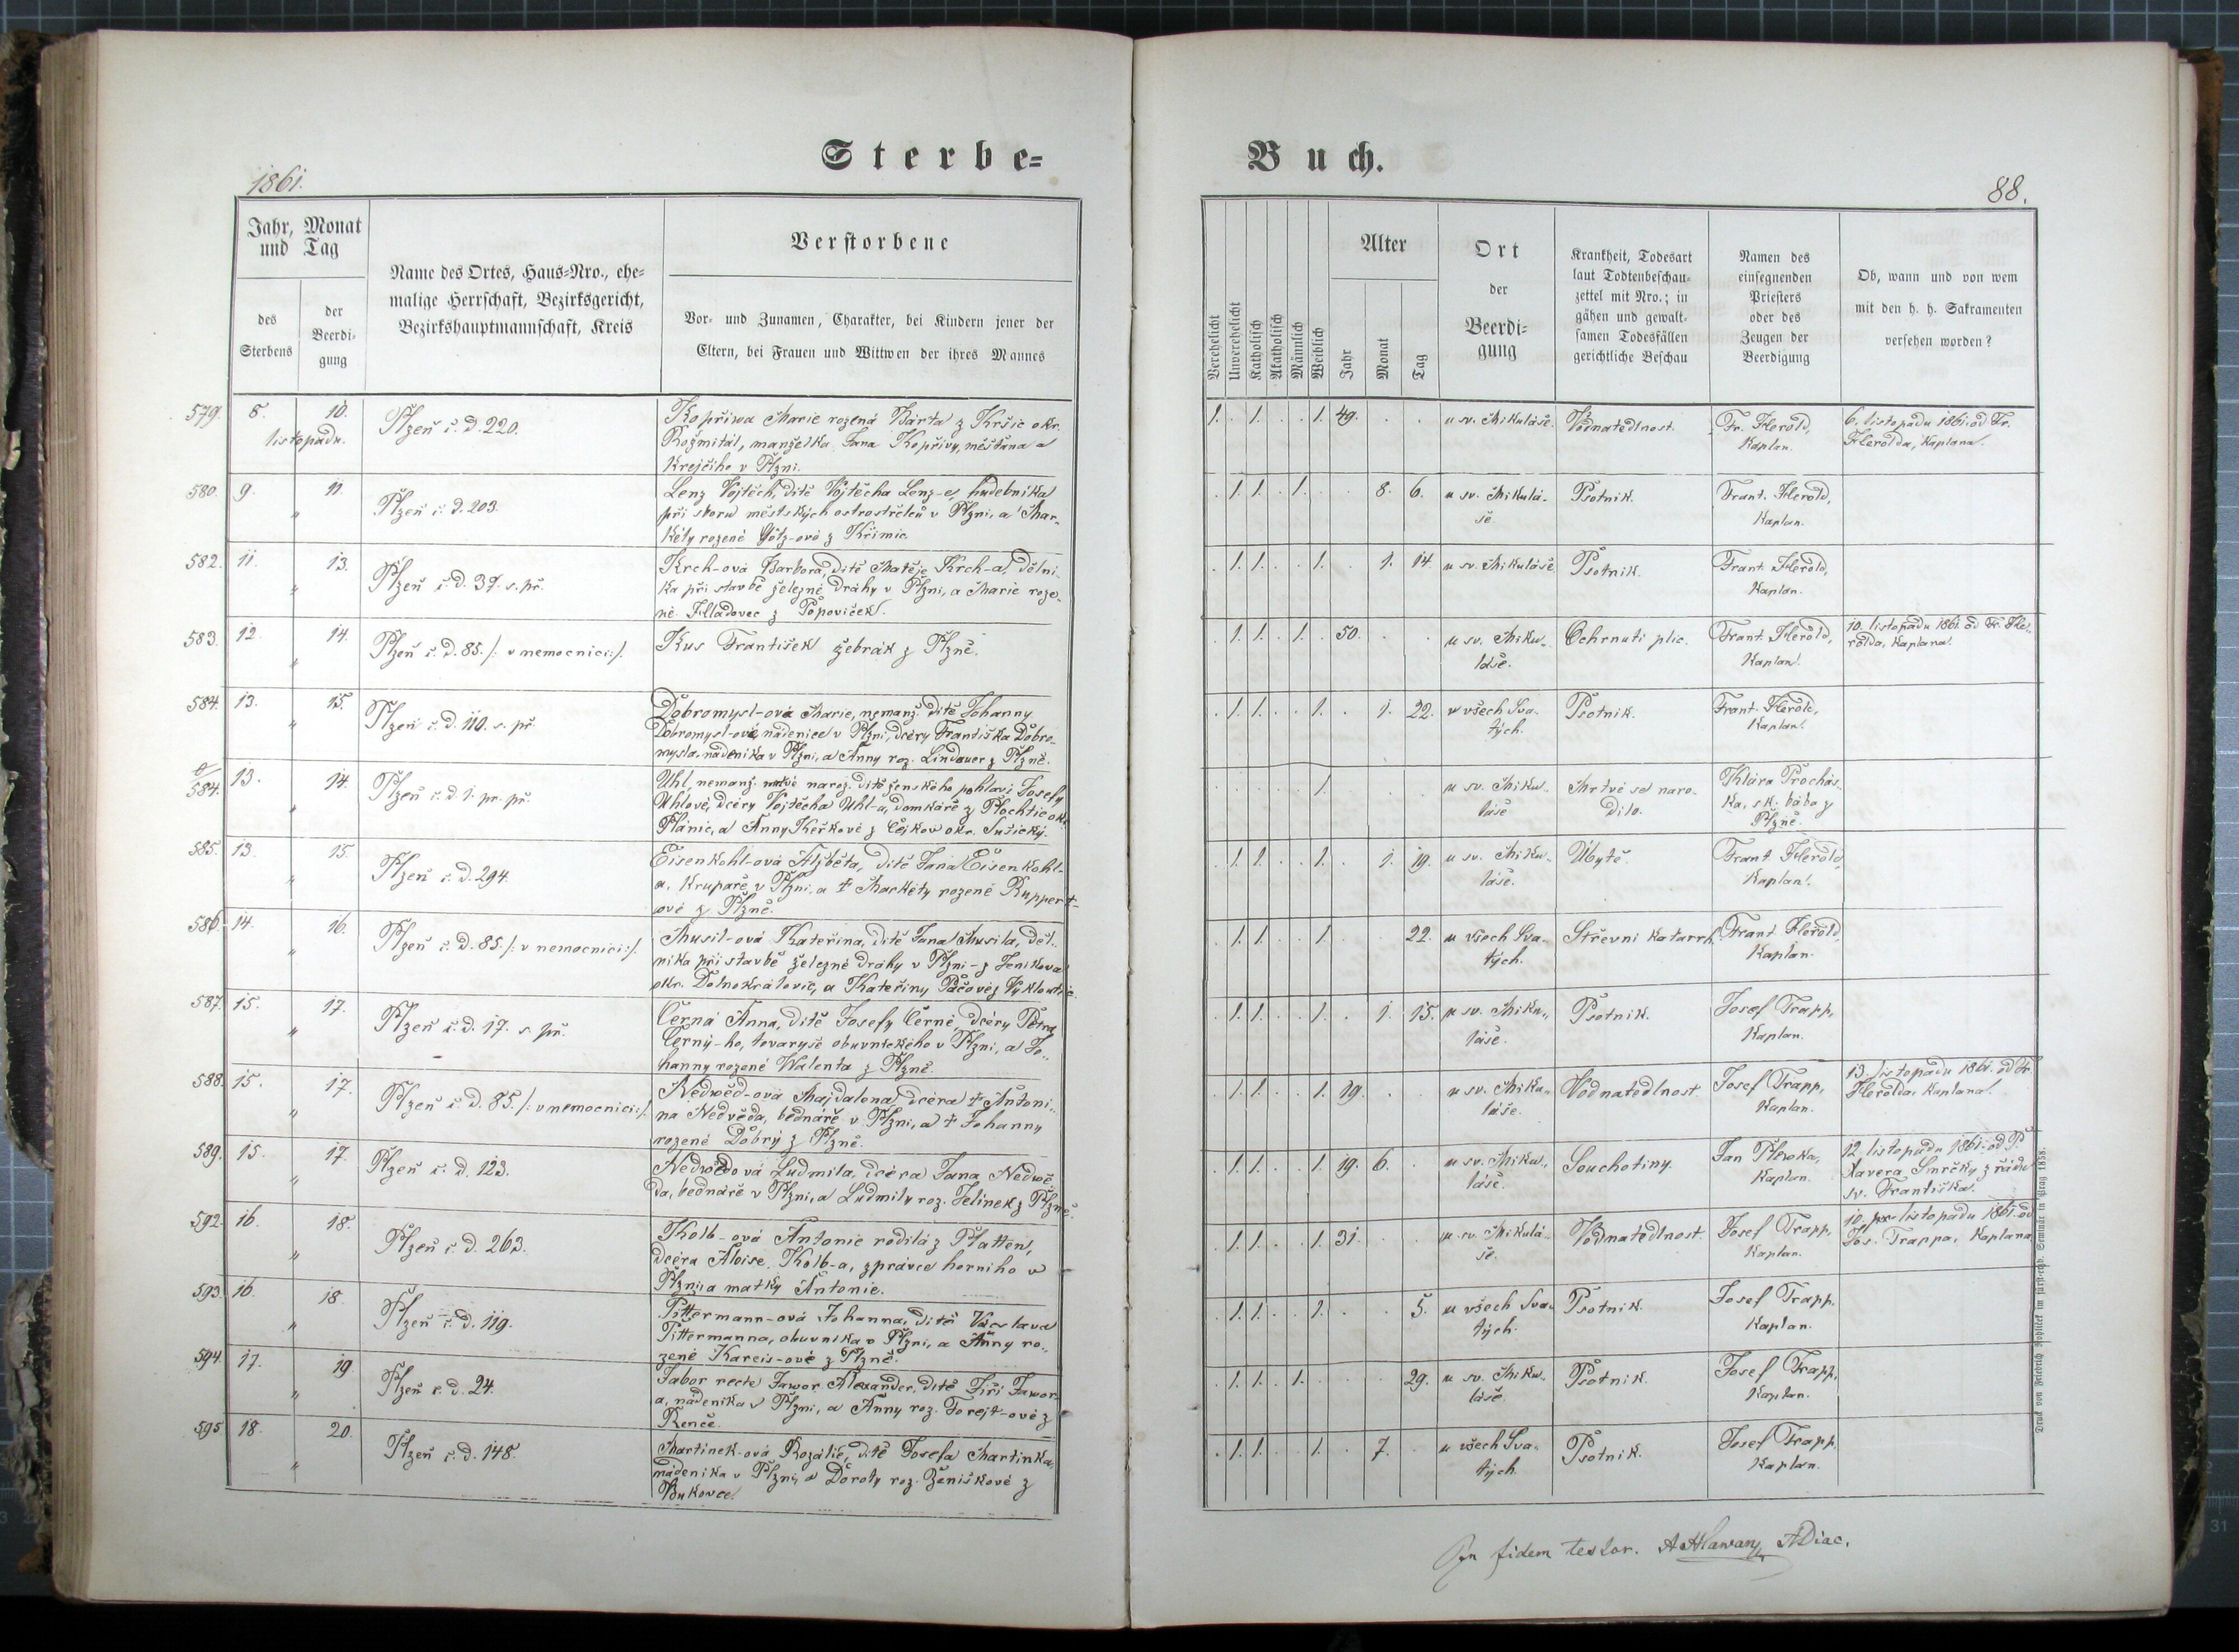 Sterbe=
Buch.
1861.
88.
Jahr, Monat
und Tag
des
Sterbens
der
Beerdi=
gung
Name des Ortes, Haus=Nro., ehe=
malige Herrschaft, Bezirksgericht,
Bezirkshauptmannschaft, Kreis
Verstorbene
Vor= und Zunamen, Charakter, bei Kindern jener der
Eltern, bei Frauen und Wittwen der ihres Mannes
Verehelicht
Unverehelicht
Katholisch
Akatholisch
Männlich
Weiblich
Alter
Jahr
Monat
Tag
Ort
der
Beerdi=
gung
Krankheit, Todesart
laut Todtenbeschau=
zettel mit Nro.; in
gähen und gewalt=
samen Todesfällen
gerichtliche Beschau
Namen des
einsegnenden
Priesters
oder des
Zeugen der
Beerdigung
Ob, wann und von wem
mit den h. h. Sakramenten
versehen worden?
579. 8. 10.
listopadu.
Plzeň č. d. 220.
Kopřiwa Marie rozená Bárta z Kršic okr.
Rožmitál, manželka Jana Kopřivy, měšťana a
krejčího v Plzni.
1. . 1. . . 1. 49. . . u sv. Mikuláše. Vodnatedlnost. Fr. Herold,
Kaplan.
6. listopadu 1861. od Fr.
Herolda, Kaplana.
580. 9. 11.
„
Plzeň č. d. 203.
Lenz Vojtěch, dítě Vojtěcha Lenz-e, hudebníka
při sboru městských ostrostřelců v Plzni, a Mar„
kéty rozené Götz-ové z Křimic.
. 1. 1. . 1. . . 8. 6. u sv. Mikulá-
še.
Psotník. Frant. Herold,
Kaplan.
582. 11. 13.
„
Plzeň č. d. 37. s. př.
Krch-ová Barbora, dítě Matěje Krch-a, dělní-
ka při stavbě železné dráhy v Plzni, a Marie roze„
né Hladovec z Popoviček.
. 1. 1. . . 1. . 1. 14. u sv. Mikuláše Psotník. Frant. Herold,
Kaplan.
583. 12. 14.
„
Plzeň č. d. 85. /: v nemocnici :/.
Kus František žebrák z Plzně.
. 1. 1. . 1. . 50. . . u sv. Miku„
láše.
Ochrnutí plic. Frant. Herold,
Kaplan.
10. listopadu 1861 od Fr. He„
rolda, Kaplana.
584. 13. 15.
„
Plzeň č. d. 110. s. př.
Dobromysl-ová Marie, nemanž. dítě Johanny
Dobromysl-ové, nádenice v Plzni, dcéry Františka Dobro„
mysla, nádeníka v Plzni, a Anny roz. Lindauer z Plzně.
. 1. 1. . . 1. . 1. 22. u všech Sva„
tých.
Psotník. Frant. Herold,
Kaplan.
584. 13. 14.
Plzeň č. d. 1. pr. př.
Uhl, nemanž. mrtvě naroz. dítě ženského pohlaví Josefy
Uhlové, dcéry Vojtěcha Uhl-a, domkáře z Plochtic okr.
Plánic, a Anny Keřkové z Čejkov okr. Sušický.
1. u sv. Miku„
láše
Mrtvé se naro„
dilo.
Klára Procház„
ka, sk. bába z
Plzně.
585. 13. 15.
„
Plzeň č. d. 294.
Eisenkohl-ová Alžběta, dítě Jana Eisenkohl-
a, krupaře v Plzni, a † Markéty rozené Ruppert-
ové z Plzně.
. 1. 1. . . 1. . 1. 19. u sv. Miku„
láše.
Úbytě. Frant. Herold,
Kaplan.
586. 14. 16.
„
Plzeň č. d. 85. /: v nemocnici :/.
Musil-ová Kateřina, dítě Jana Musila, děl„
níka při stavbě železné dráhy v Plzni - z Jeníkova
okr. Dolnokrálovic, a Kateřiny Páčové z Vyklantic
. 1. 1. . . 1. 22. u všech Sva„
tých.
Střevní katarrh. Frant. Herold,
Kaplan.
587. 15. 17.
„
Plzeň č. d. 17. s. př.
Černá Anna, dítě Josefy Černé, dcéry Petra
Černý-ho, tovaryše obuvnického v Plzni, a Jo„
hanny rozené Walenta z Plzně.
. 1. 1. . . 1. . 1. 15. u sv. Miku„
láše.
Psotník. Josef Trapp,
Kaplan.
588. 15. 17.
„
Plzeň č. d. 85. /: v nemocnici :/.
Nedwěd-ová Majdalena, dcéra † Antoní„
na Nedvěda, bednáře v Plzni, a † Johanny
rozené Dobrý z Plzně.
. 1. 1. . . 1. 19. . . u sv. Miku„
láše.
Vodnatedlnost. Josef Trapp,
Kaplan.
13. listopadu 1861. od Fr.
Herolda, Kaplana.
589. 15. 17.
„
Plzeň č. d. 123.
Nedwědová Ludmila, dcéra Jana Nedwě
da, bednáře v Plzni, a Ludmily roz. Jelínek z Plzně.
. 1. 1. . . 1. 19. 6. . u sv. Miku„
láše.
Souchotiny. Jan
Kaplan.
12. listopadu 1861. od P.
Xavera Smrčky z řádu
sv. Františka.
592. 16. 18.
„
Plzeň č. d. 263.
Kolb-ová Antonie rodilá z Platten,
dcéra Aloise Kolb-a, zprávce horního v
Plzni, a matky Antonie.
. 1. 1. . . 1. 31. . . u sv. Mikulá-
še.
Vodnatedlnost. Josef Trapp,
Kaplan.
10. listopadu 1861. od
Jos. Trappa, Kaplana
593. 16. 18.
„
Plzeň č. d. 119.
Pittermann-ová Johanna, dítě Václava
Pittermanna, obuvníka v Plzni, a Anny ro„
zené Kareis-ové z Plzně.
. 1. 1. . . 1. . . 5. u všech Sva„
tých.
Psotník. Josef Trapp.
Kaplan.
594. 17. 19.
„
Plzeň č. d. 24.
Jabor recte Jawor Alexander, dítě Jiří Jawor-
a, nádeníka v Plzni, a Anny roz. Forejt-ové z
Renče.
. 1. 1. . 1. . . . 29. u sv. Miku„
láše.
Psotník. Josef Trapp,
Kaplan.
595 18. 20.
„
Plzeň č. d. 148.
Martinek-ová Rozálie, dítě Josefa Martinka,
nádeníka v Plzni, a Doroty roz. Ženíškové z
Bukovce.
. 1. 1. . . 1. . 7. . u všech Sva„
tých.
Psotník. Josef Trapp.
Kaplan.
In fidem testor. AHlawan ADiac.